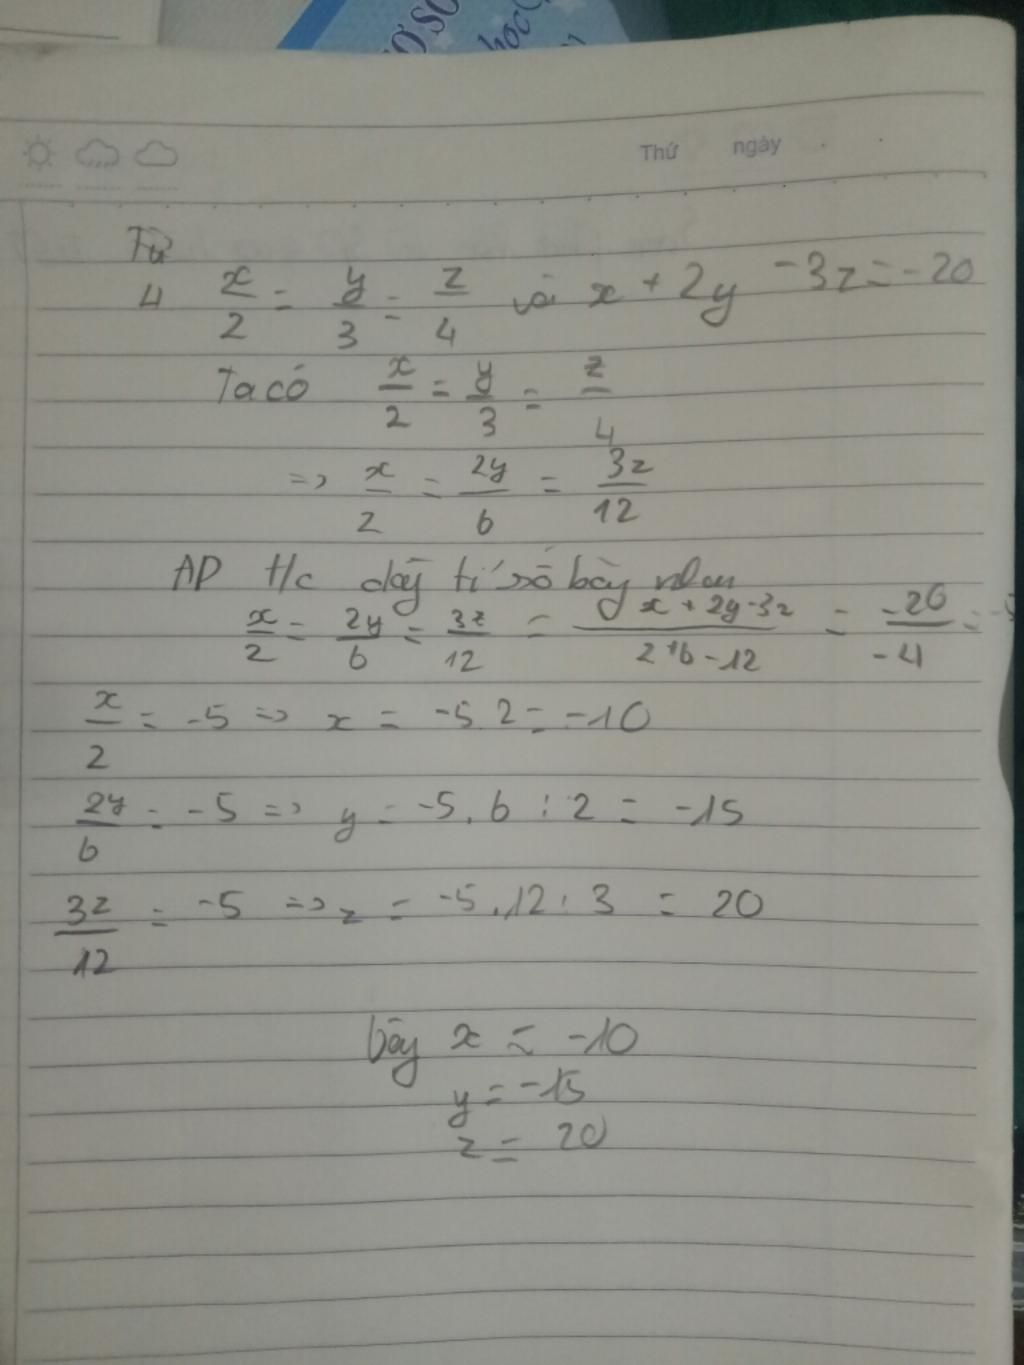 Ơ SƠ
học
Thứ ngày
Từ
4 x/2 = y/3 = z/4 và x + 2y - 3z = -20
Ta có x/2 = y/3 = z/4
=> x/2 = 2y/6 = 3z/12
AD t/c dãy tỉ số bày nhau
x/2 = 2y/6 = 3z/12 = x + 2y - 3z/2 + 6 - 12 = -20/-4 = -5
x/2 = -5 => x = -5. 2 = -10
2y/6 = -5 => y = -5. 6 : 2 = -15
3z/12 = -5 => z = -5. 12 : 3 = 20
Vậy x = -10
y = -15
z = 20